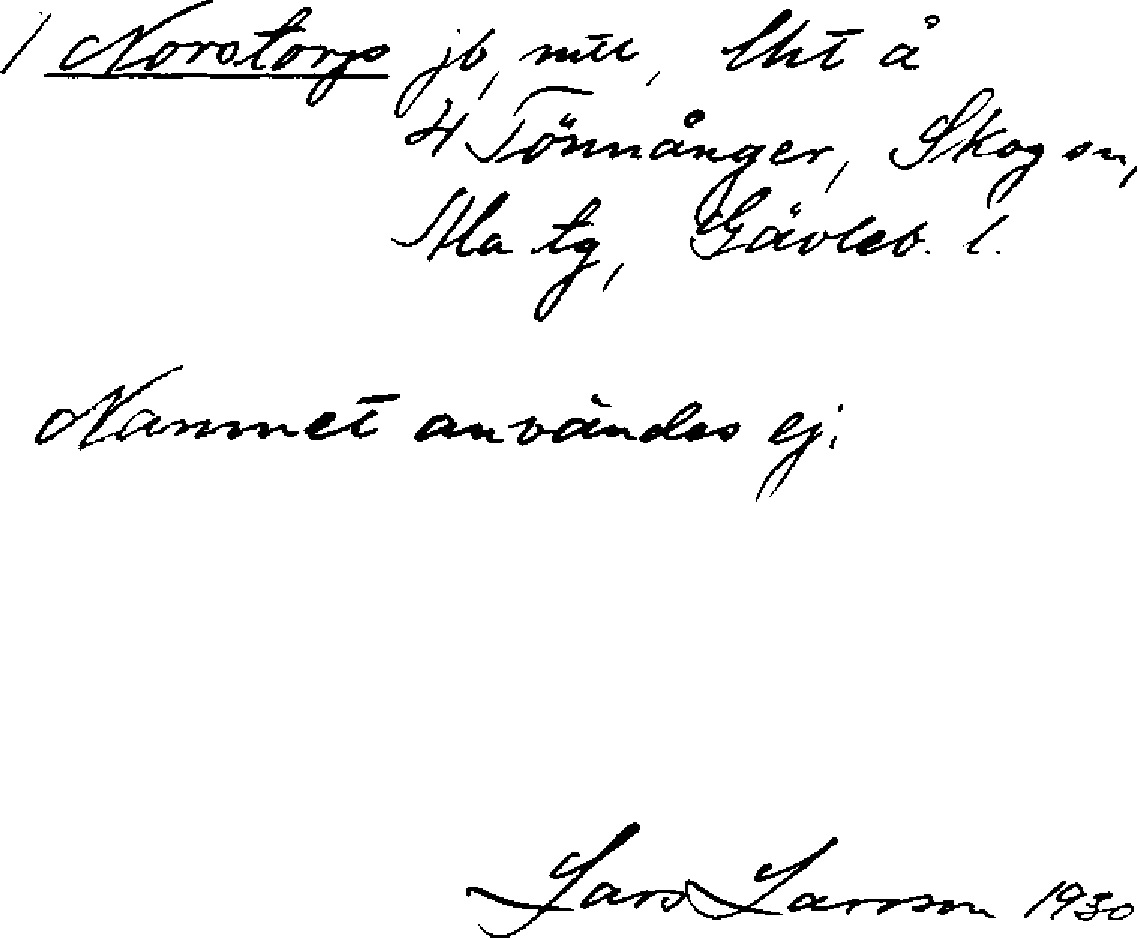 1 Norstorp jb, mtl, lht å
4 Tönnånger, Skog sn,
Ala tg, Gävleb. l.
Namnet användes ej.
Lars Larsson 1930